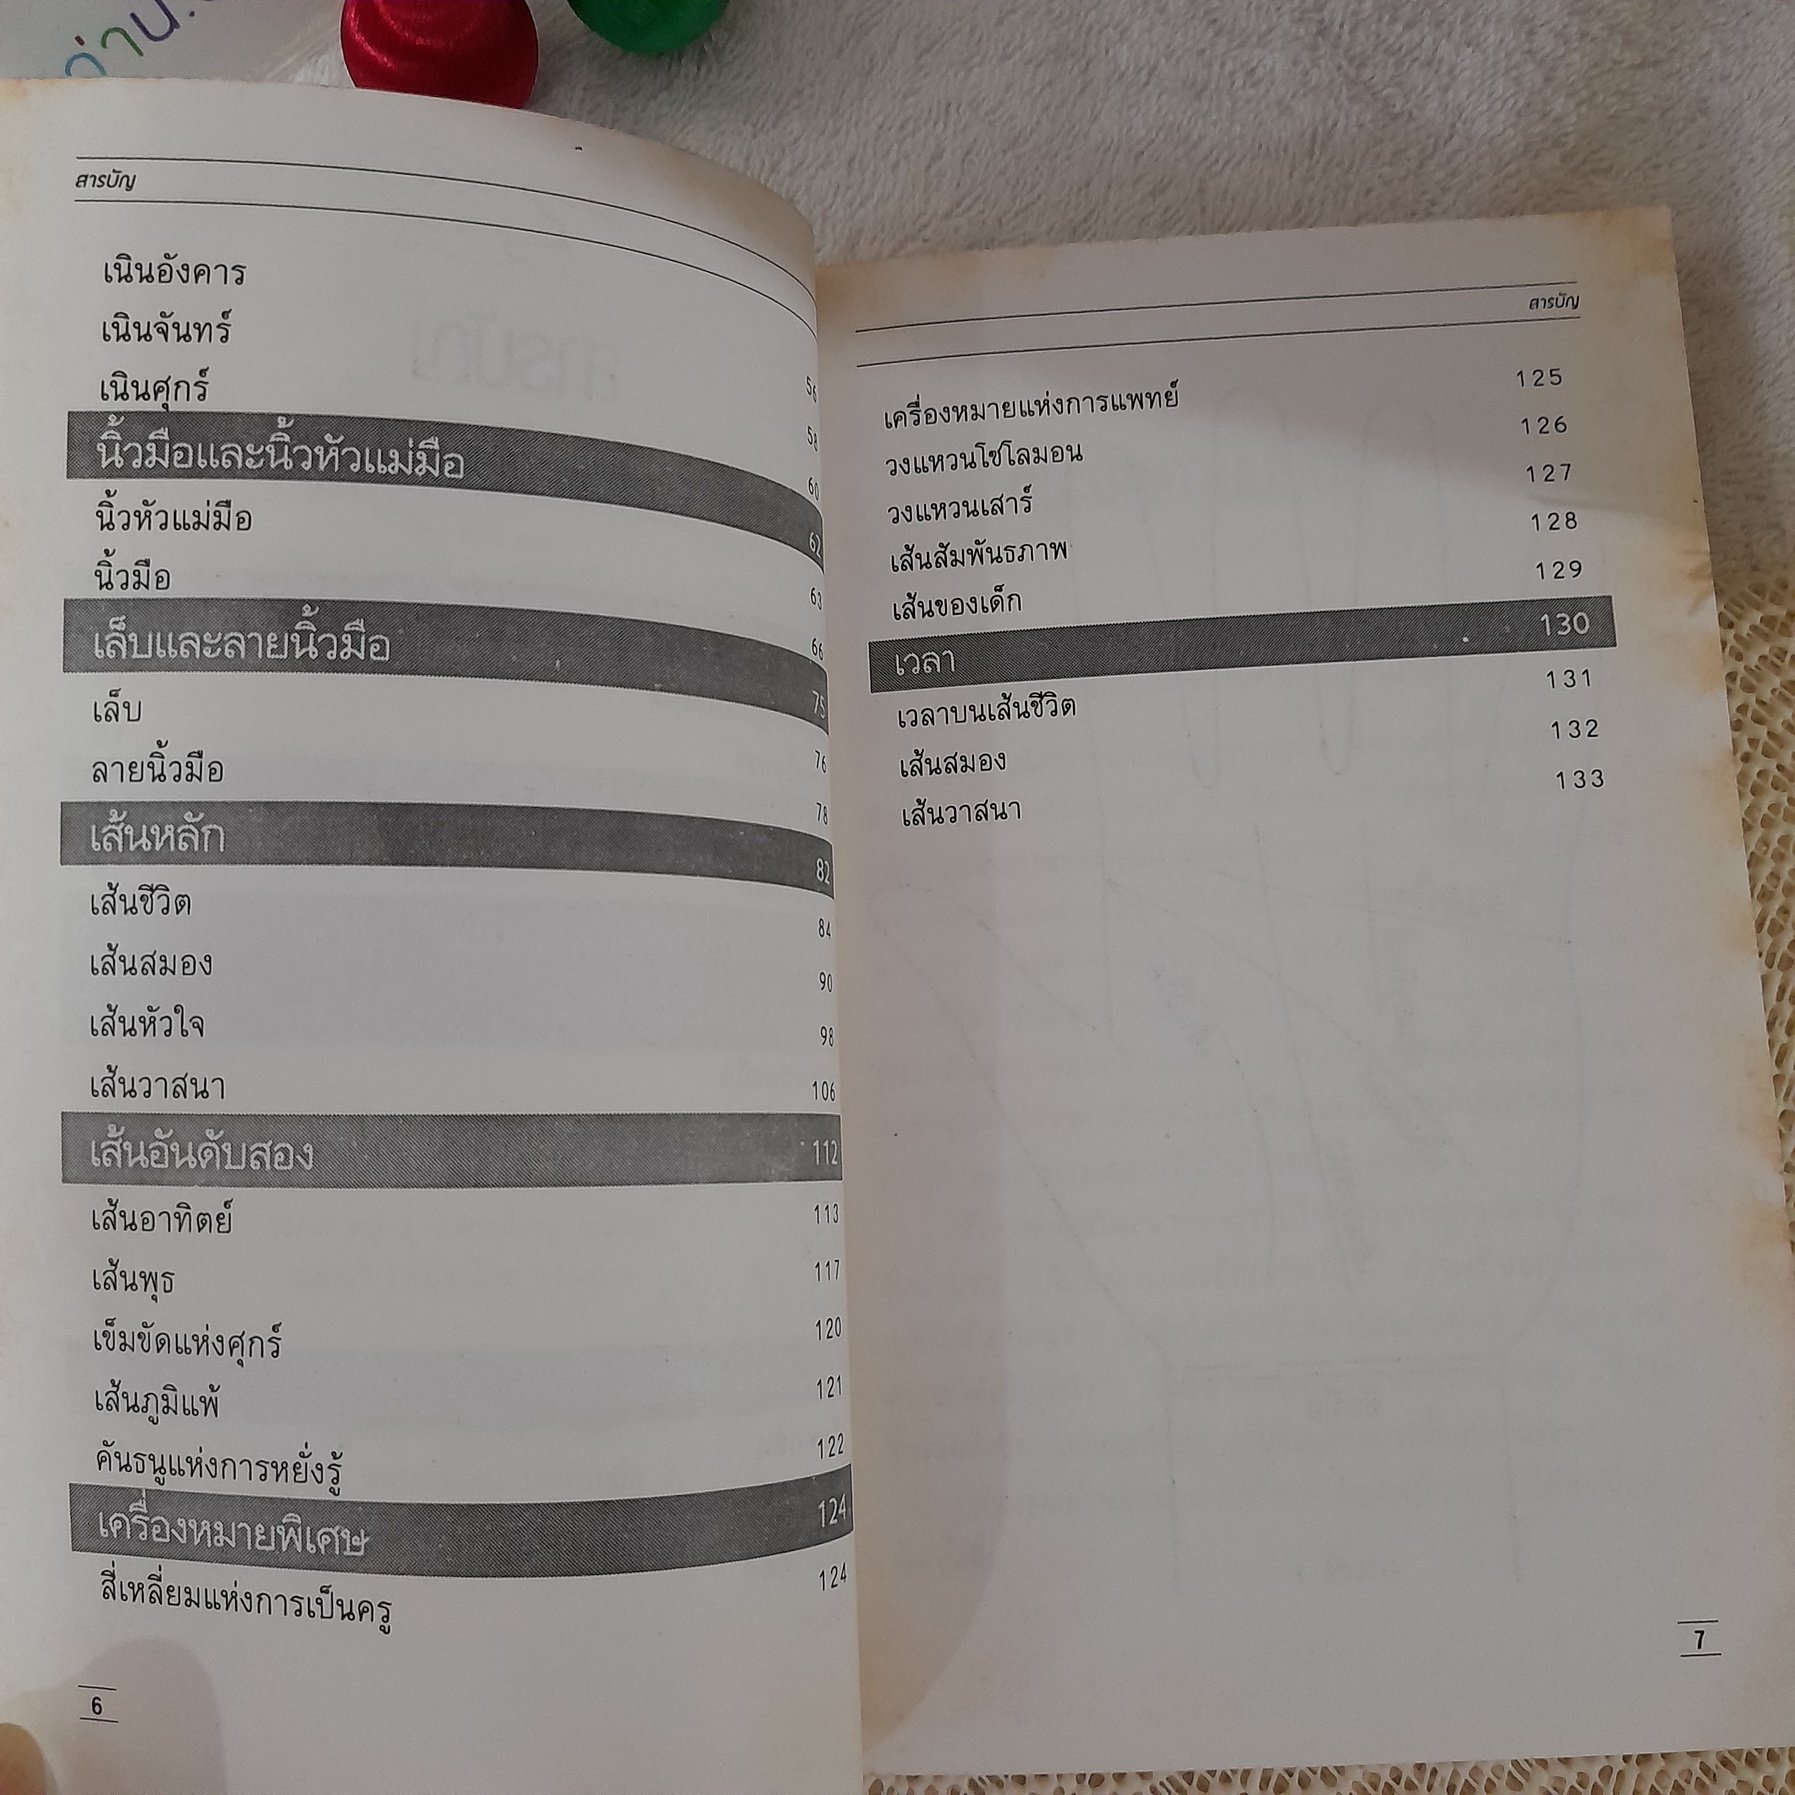 สารบัญ
เนินอังคาร 56
เนินจันทร์ 58
เนินศุกร์ 60
นิ้วมือและนิ้วหัวแม่มือ 62
นิ้วหัวแม่มือ 63
นิ้วมือ 66
เล็บและลายนิ้วมือ 75
เล็บ 76
ลายนิ้วมือ 78
เส้นหลัก 82
เส้นชีวิต 84
เส้นสมอง 90
เส้นหัวใจ 98
เส้นวาสนา 106
เส้นอันดับสอง 112
เส้นอาทิตย์ 113
เส้นพุธ 117
เข็มขัดแห่งศุกร์ 120
เส้นภูมิแพ้ 121
คันธนูแห่งการหยั่งรู้ 122
เครื่องหมายพิเศษ 124
สี่เหลี่ยมแห่งการเป็นครู 124
6
สารบัญ
เครื่องหมายแห่งการแพทย์ 125
วงแหวนโซโลมอน 126
วงแหวนเสาร์ 127
เส้นสัมพันธภาพ 128
เส้นของเด็ก 129
เวลา 130
เวลาบนเส้นชีวิต 131
เส้นสมอง 132
เส้นวาสนา 133
7